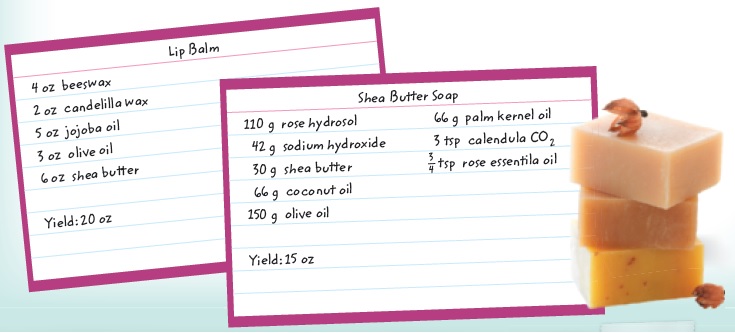 Lip Balm
4 oz beeswax
2 oz candelilla wax
5 oz jojoba oil
3 oz olive oil
6 oz shea butter
Yield: 20 oz
Shea Butter Soap
110 g rose hydrosol
42 g sodium hydroxide
30 g shea butter
66 g coconut oil
150 g olive oil
66 g palm kernel oil
3 tsp calendula CO₂
3/4 tsp rose essentila oil
Yield: 15 oz